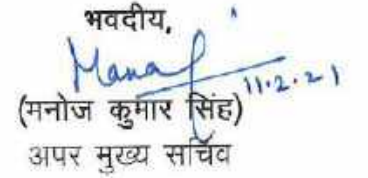 भवदीय,
11.2.21
(मनोज कुमार सिंह)
अपर मुख्य सचिव